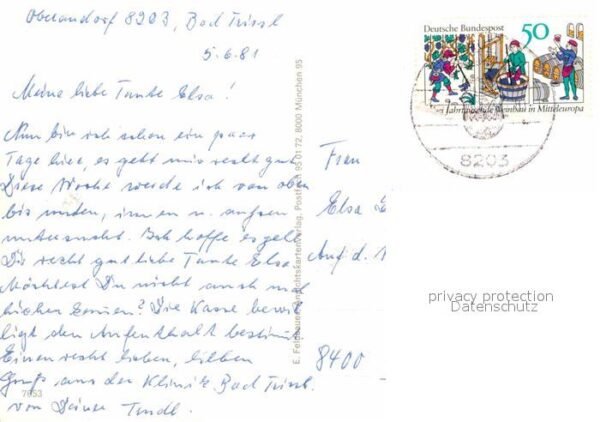 Oberaudorf 8203, Bad Trissl
5.6.81
Meine liebe Tante Elsa!
Nun bin ich schon ein paar
Tage hier, es geht mir recht gut.
Diese Woche werde ich von oben
bis unten, innen u. aussen
untersucht. Ich hoffe es geht
Dir recht gut liebe Tante Elsa
Möchtest Du nicht auch mal
hierher kommen? Die Kasse bewil
ligt den Aufenthalt bestimmt
Einen recht lieben, lieben
Gruß aus der Klinik Bad Trissl.
von Deiner
7653
E. Feldbauer Ansichtskartenverlag. Postfach 95 01 72, 8000 München 95
Deutsche Bundespost 50
Jahrtausende Weinbau in Mitteleuropa
8203
Frau
Elsa
Auf d.
8400
privacy protection
Datenschutz